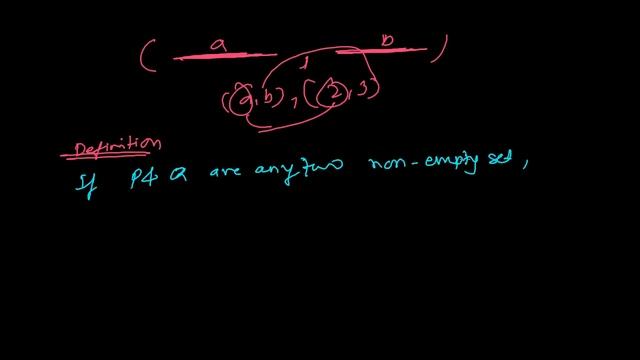 ( a b )
(a, b), (2, 3)
Definition
If P & Q are any two non-empty set,